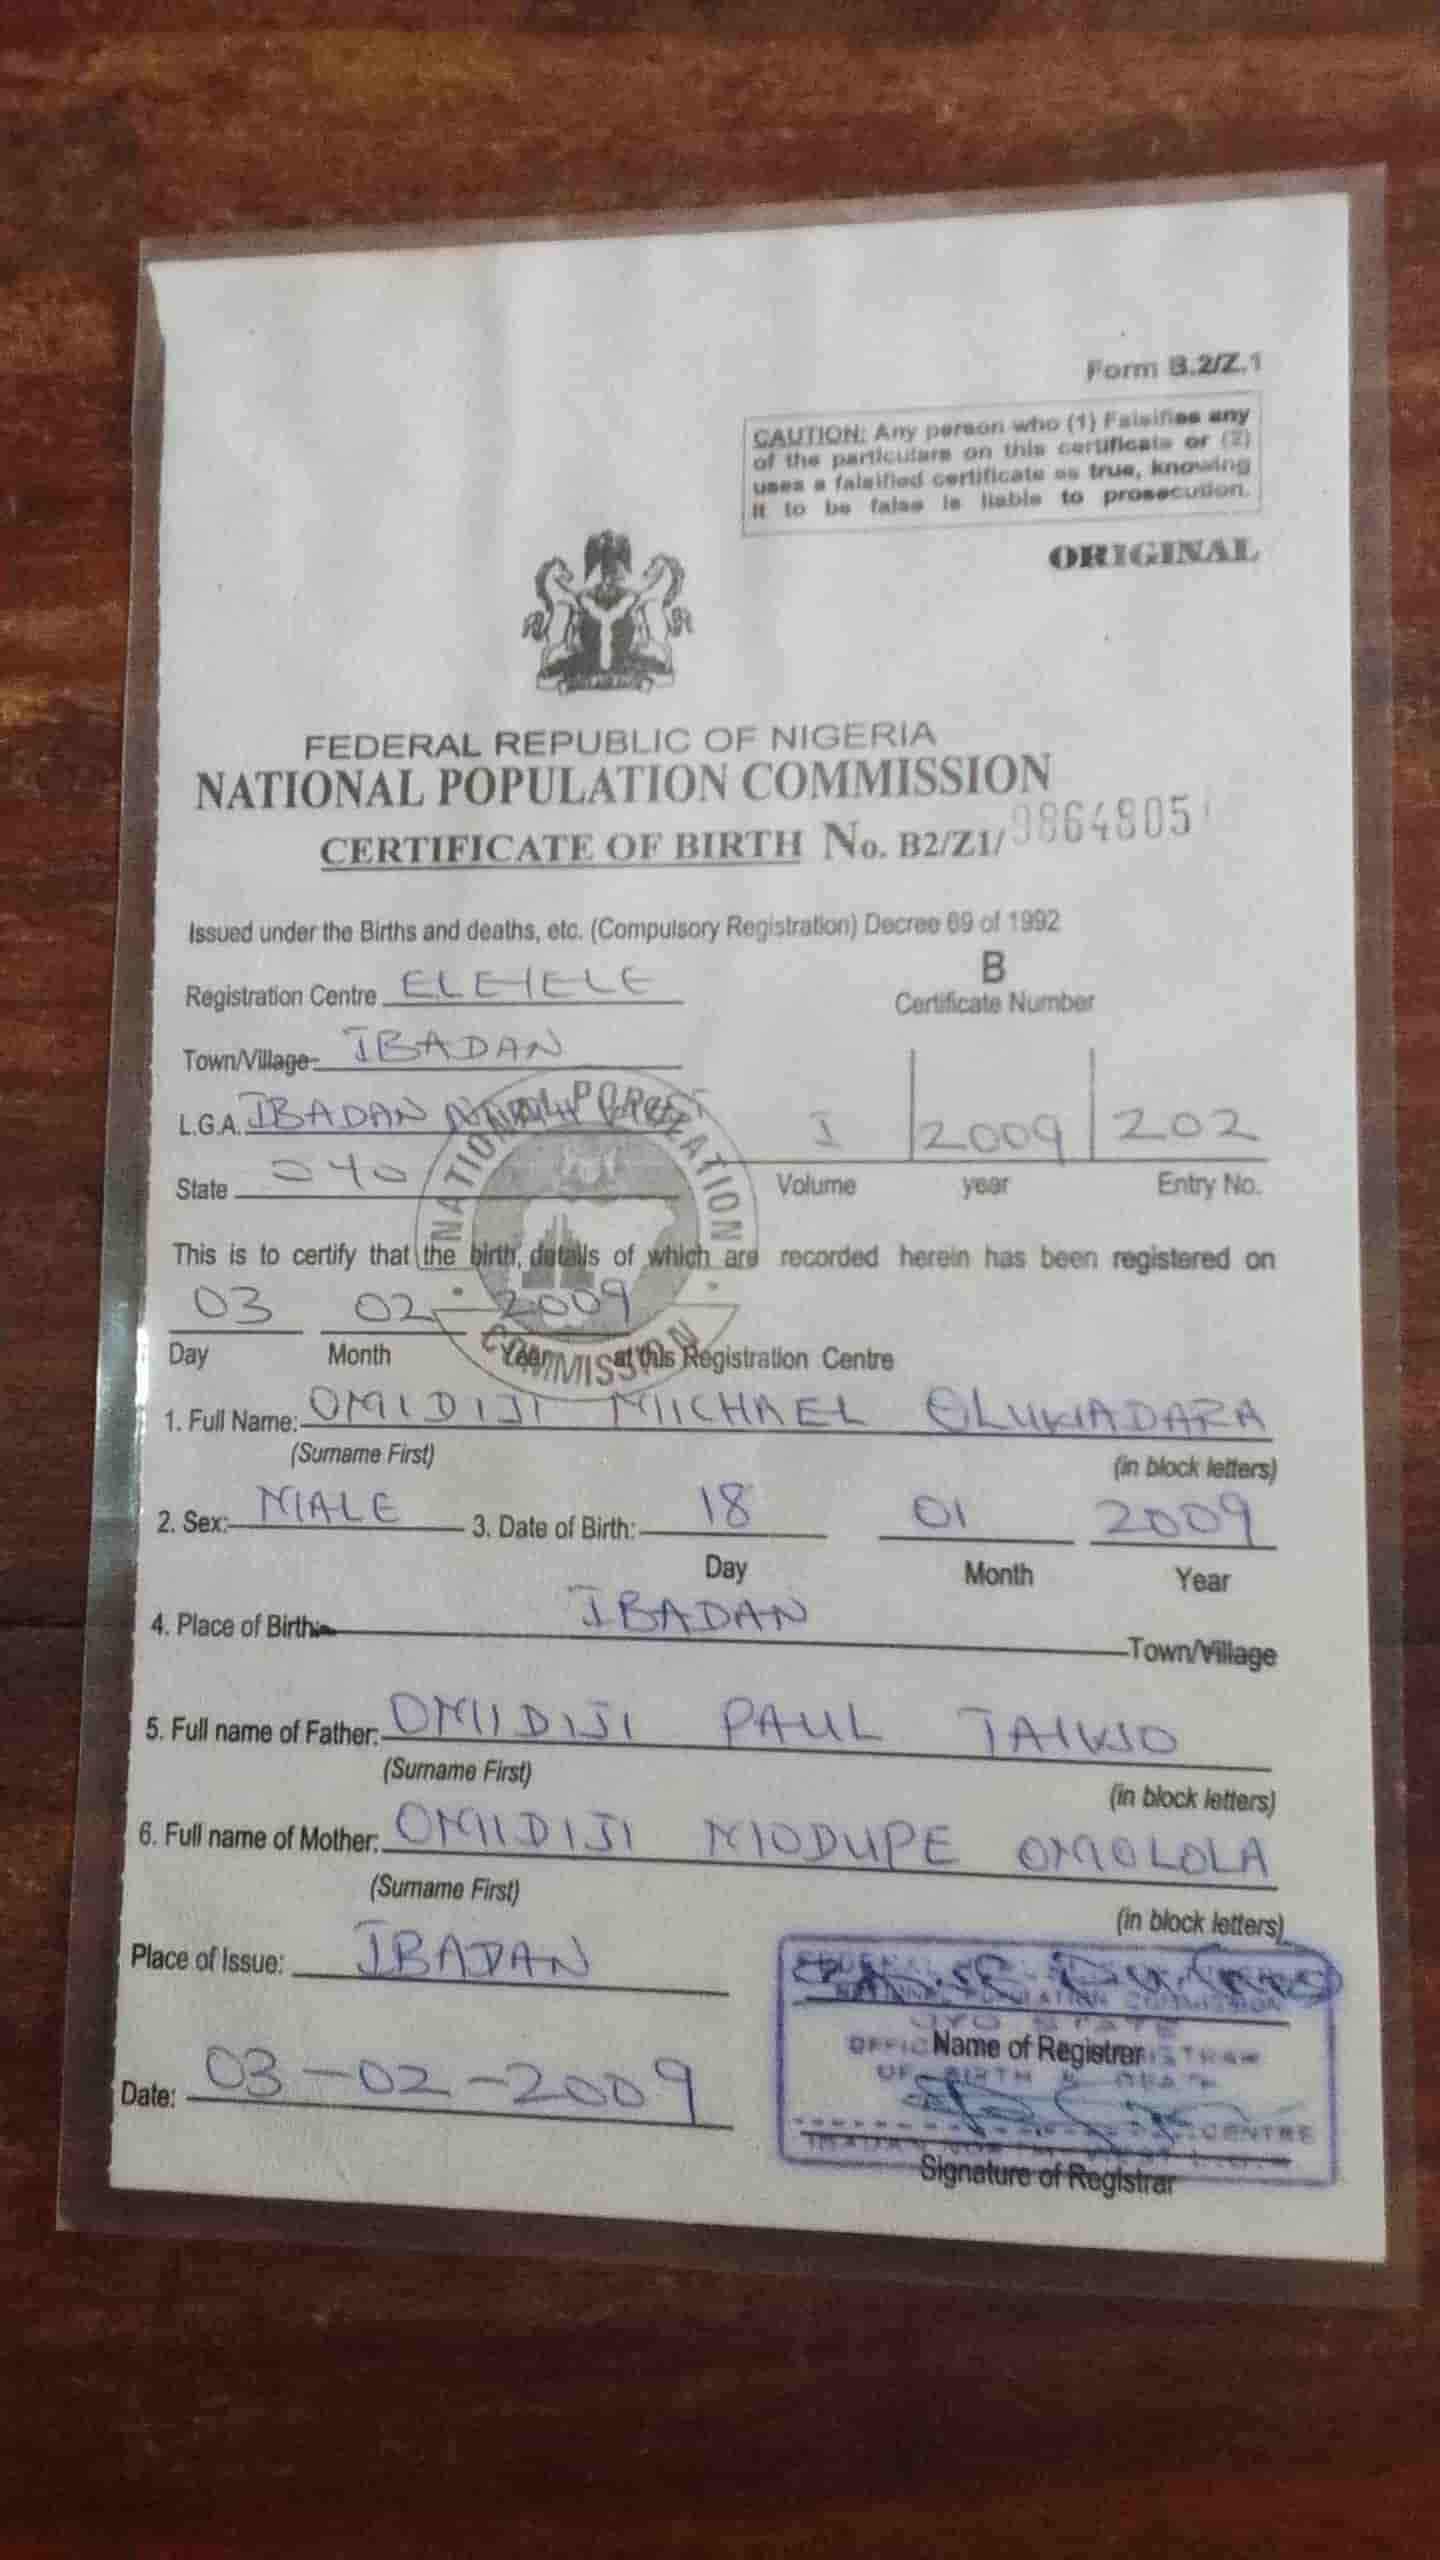 Form B.2/Z.1
CAUTION: Any person who (1) Falsifies any
of the particulars on this certificate or (2)
uses a falsified certificate as true, knowing
it to be false is liable to prosecution.
ORIGINAL
FEDERAL REPUBLIC OF NIGERIA
NATIONAL POPULATION COMMISSION
CERTIFICATE OF BIRTH No. B2/Z1/ 9864805
Issued under the Births and deaths, etc. (Compulsory Registration) Decree 69 of 1992
Registration Centre ELEYELE
B
Certificate Number
Town/Village IBADAN
L.G.A. IBADAN NORTH
State OYO
I 2009 202
Volume year Entry No.
NATIONAL POPULATION COMMISSION
This is to certify that the birth, details of which are recorded herein has been registered on
03 02 2009
Day Month Year at this Registration Centre
1. Full Name: OMIDIJI MICHAEL OLUWADARA
(Surname First) (in block letters)
2. Sex: MALE 3. Date of Birth: 18 01 2009
Day Month Year
4. Place of Birth: IBADAN Town/Village
5. Full name of Father: OMIDIJI PAUL TAIWO
(Surname First) (in block letters)
6. Full name of Mother: OMIDIJI MODUPE OMOLOLA
(Surname First) (in block letters)
Place of Issue: IBADAN
NATIONAL POPULATION COMMISSION
OYO STATE
Name of Registrar
OF BIRTH & DEATH
Date: 03-02-2009
CENTRE
Signature of Registrar